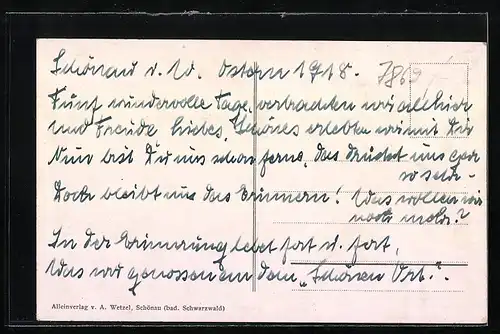 Schönau i. W. Ostern 1918.
7869
Fünf wundervolle Tage, verbrachten wir allhier
und Freude, Liebes, Schönes erlebten wir mit Dir
Nun bist Du uns schon ferne, das drückt uns gar
so sehr -
Doch bleibt uns das Erinnern! Was wollen wir
noch mehr?
In der Erinnerung lebet fort u. fort,
Was wir genossen an dem "Schönen Ort".
Alleinverlag v. A. Wetzel, Schönau (bad. Schwarzwald)